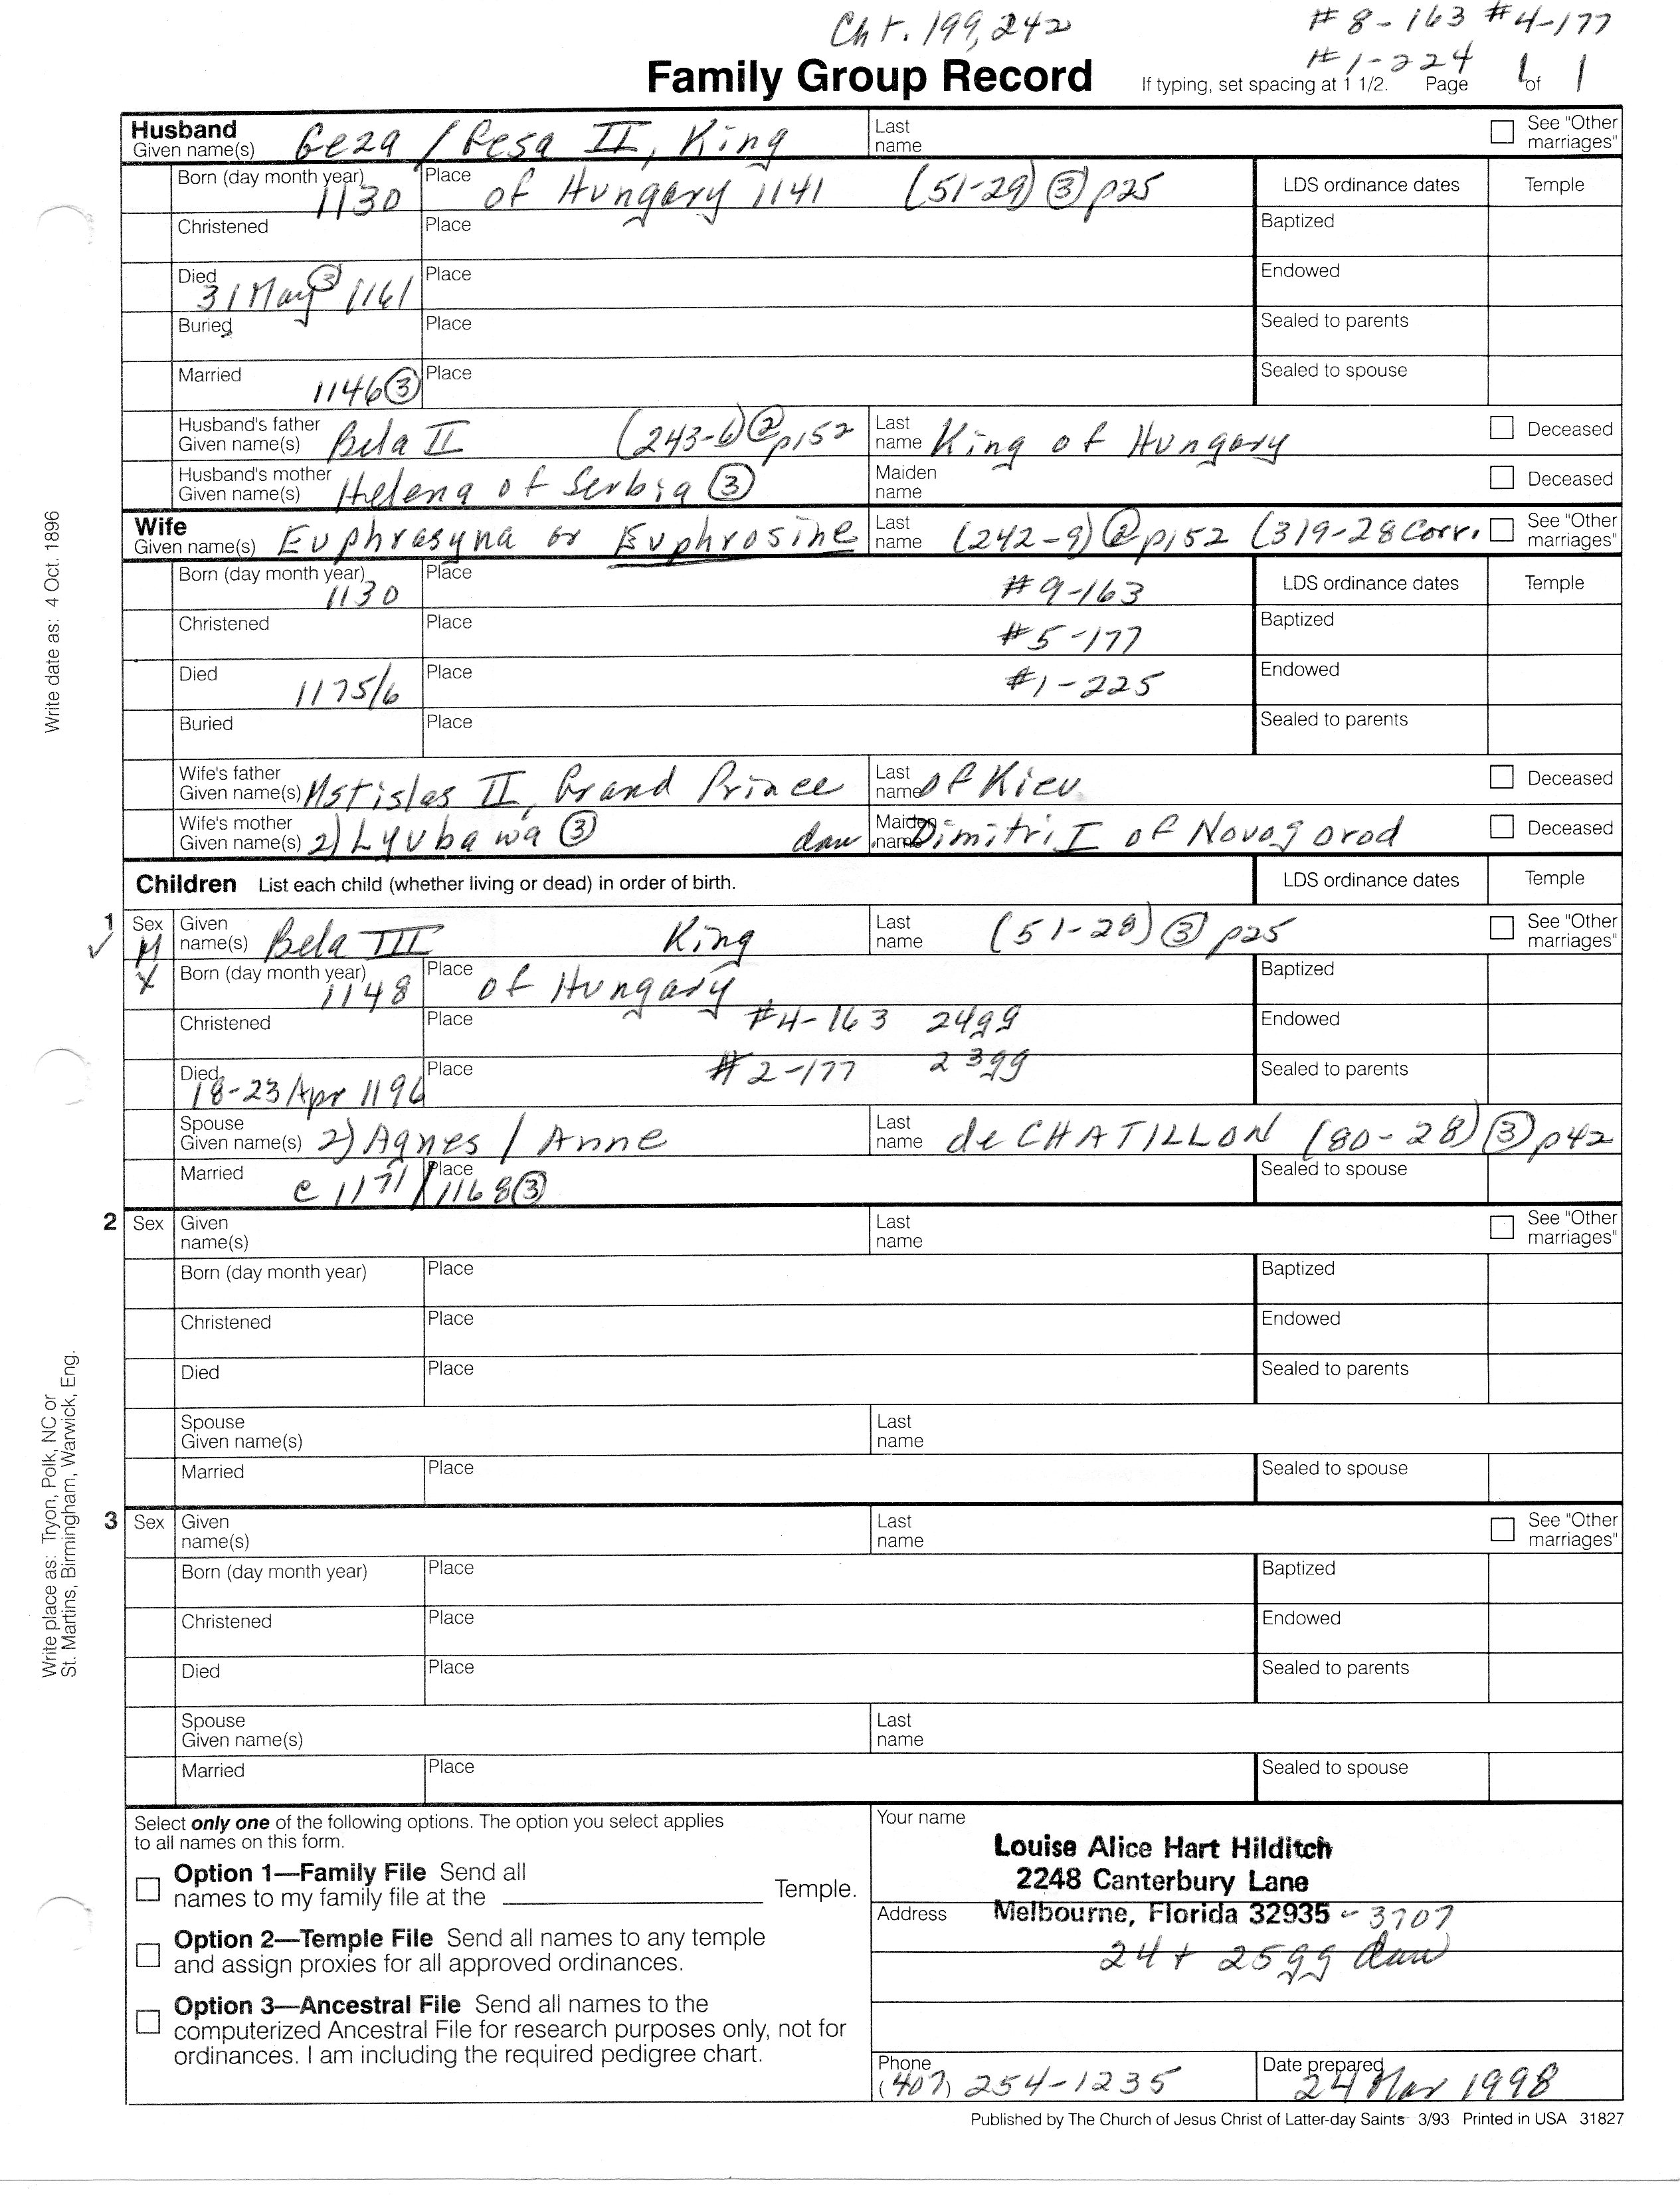 Cht. 199,242
# 8-163 # 4-177
# 1-224
Family Group Record If typing, set spacing at 1 1/2. Page 1 of 1
Husband Given name(s) Geza / Gesa II, King Last name See "Other marriages"
Born (day month year) 1130 Place of Hungary 1141 (51-29) ③ p25 LDS ordinance dates Temple
Christened Place Baptized
Died 31 May ③ 1161 Place Endowed
Buried Place Sealed to parents
Married 1146 ③ Place Sealed to spouse
Husband's father Given name(s) Bela II (243-6) ② p152 Last name King of Hungary Deceased
Husband's mother Given name(s) Helena of Serbia ③ Maiden name Deceased
Wife Given name(s) Euphrasyna or Euphrosine Last name (242-9) ② p152 (319-28 Corr. See "Other marriages"
Born (day month year) 1130 Place #9-163 LDS ordinance dates Temple
Christened Place #5-177 Baptized
Died 1175/6 Place #1-225 Endowed
Buried Place Sealed to parents
Wife's father Given name(s) Mstislas II, Grand Prince Last name of Kiev Deceased
Wife's mother Given name(s) 2) Lyubawa ③ dau Maiden name Dimitri I of Novogorod Deceased
Children List each child (whether living or dead) in order of birth. LDS ordinance dates Temple
1 Sex M Given name(s) Bela III King Last name (51-28) ③ p25 See "Other marriages"
X Born (day month year) 1148 Place of Hungary Baptized
Christened Place #4-163 24gg Endowed
Died 18-23 Apr 1196 Place #2-177 23gg Sealed to parents
Spouse Given name(s) 2) Agnes / Anne Last name de CHATILLON (80-28) ③ p42
Married c 1171/1168 ③ Place Sealed to spouse
2 Sex Given name(s) Last name See "Other marriages"
Born (day month year) Place Baptized
Christened Place Endowed
Died Place Sealed to parents
Spouse Given name(s) Last name
Married Place Sealed to spouse
3 Sex Given name(s) Last name See "Other marriages"
Born (day month year) Place Baptized
Christened Place Endowed
Died Place Sealed to parents
Spouse Given name(s) Last name
Married Place Sealed to spouse
Select only one of the following options. The option you select applies
to all names on this form.
Option 1—Family File Send all
names to my family file at the Temple.
Option 2—Temple File Send all names to any temple
and assign proxies for all approved ordinances.
Option 3—Ancestral File Send all names to the
computerized Ancestral File for research purposes only, not for
ordinances. I am including the required pedigree chart.
Your name
Louise Alice Hart Hilditch
2248 Canterbury Lane
Address Melbourne, Florida 32935 - 3707
24 + 25gg dau
Phone (407) 254-1235 Date prepared 24 Mar 1998
Published by The Church of Jesus Christ of Latter-day Saints 3/93 Printed in USA 31827
Write date as: 4 Oct. 1896
Write place as: Tryon, Polk, NC or
St. Martins, Birmingham, Warwick, Eng.